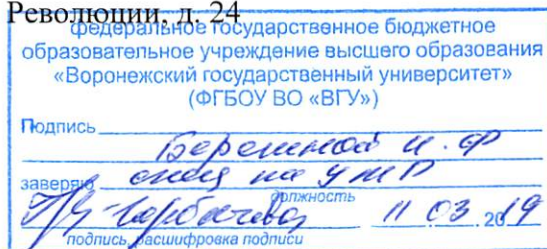 Революции, д. 24
федеральное государственное бюджетное
образовательное учреждение высшего образования
«Воронежский государственный университет»
(ФГБОУ ВО «ВГУ»)
Подпись
Бережной И. Ф
заверяю спец по УМР
должность
Горбачева 11 03 2019
подпись, расшифровка подписи